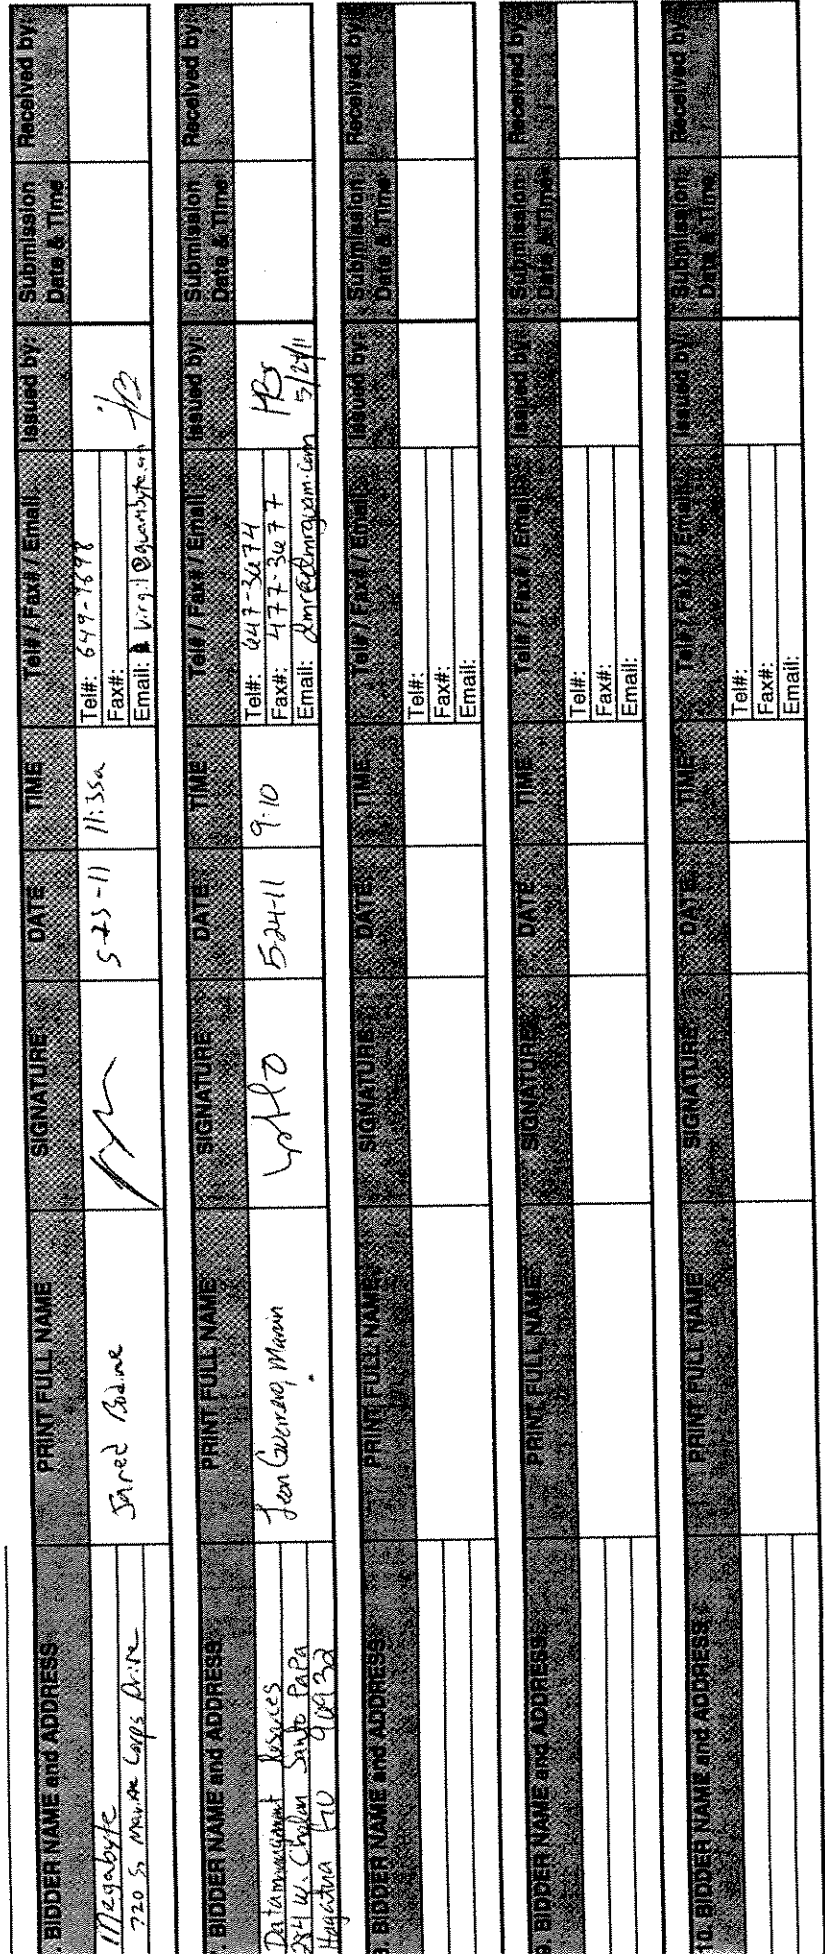 . BIDDER NAME and ADDRESS PRINT FULL NAME SIGNATURE DATE TIME Tel# / Fax# / Email Issued by: Submission Date & Time Received by:
Megabyte
720 S. Marine Corps Drive
Jared Bodine
5-23-11
11:35a
Tel#: 649-
Fax#:
Email: virgil@guambyte.com
. BIDDER NAME and ADDRESS PRINT FULL NAME SIGNATURE DATE TIME Tel# / Fax# / Email Issued by: Submission Date & Time Received by:
Datamanagement Resources
284 W. Chalan Santo Papa
Hagatna GU 96932
Marin
5-24-11
9:10
Tel#: 647-3674
Fax#: 477-3677
Email: dmr@dmrguam.com
5/24/11
8. BIDDER NAME and ADDRESS PRINT FULL NAME SIGNATURE DATE TIME Tel# / Fax# / Email Issued by: Submission Date & Time Received by:
Tel#:
Fax#:
Email:
9. BIDDER NAME and ADDRESS PRINT FULL NAME SIGNATURE DATE TIME Tel# / Fax# / Email Issued by: Submission Date & Time Received by:
Tel#:
Fax#:
Email:
10. BIDDER NAME and ADDRESS PRINT FULL NAME SIGNATURE DATE TIME Tel# / Fax# / Email Issued by: Submission Date & Time Received by:
Tel#:
Fax#:
Email: